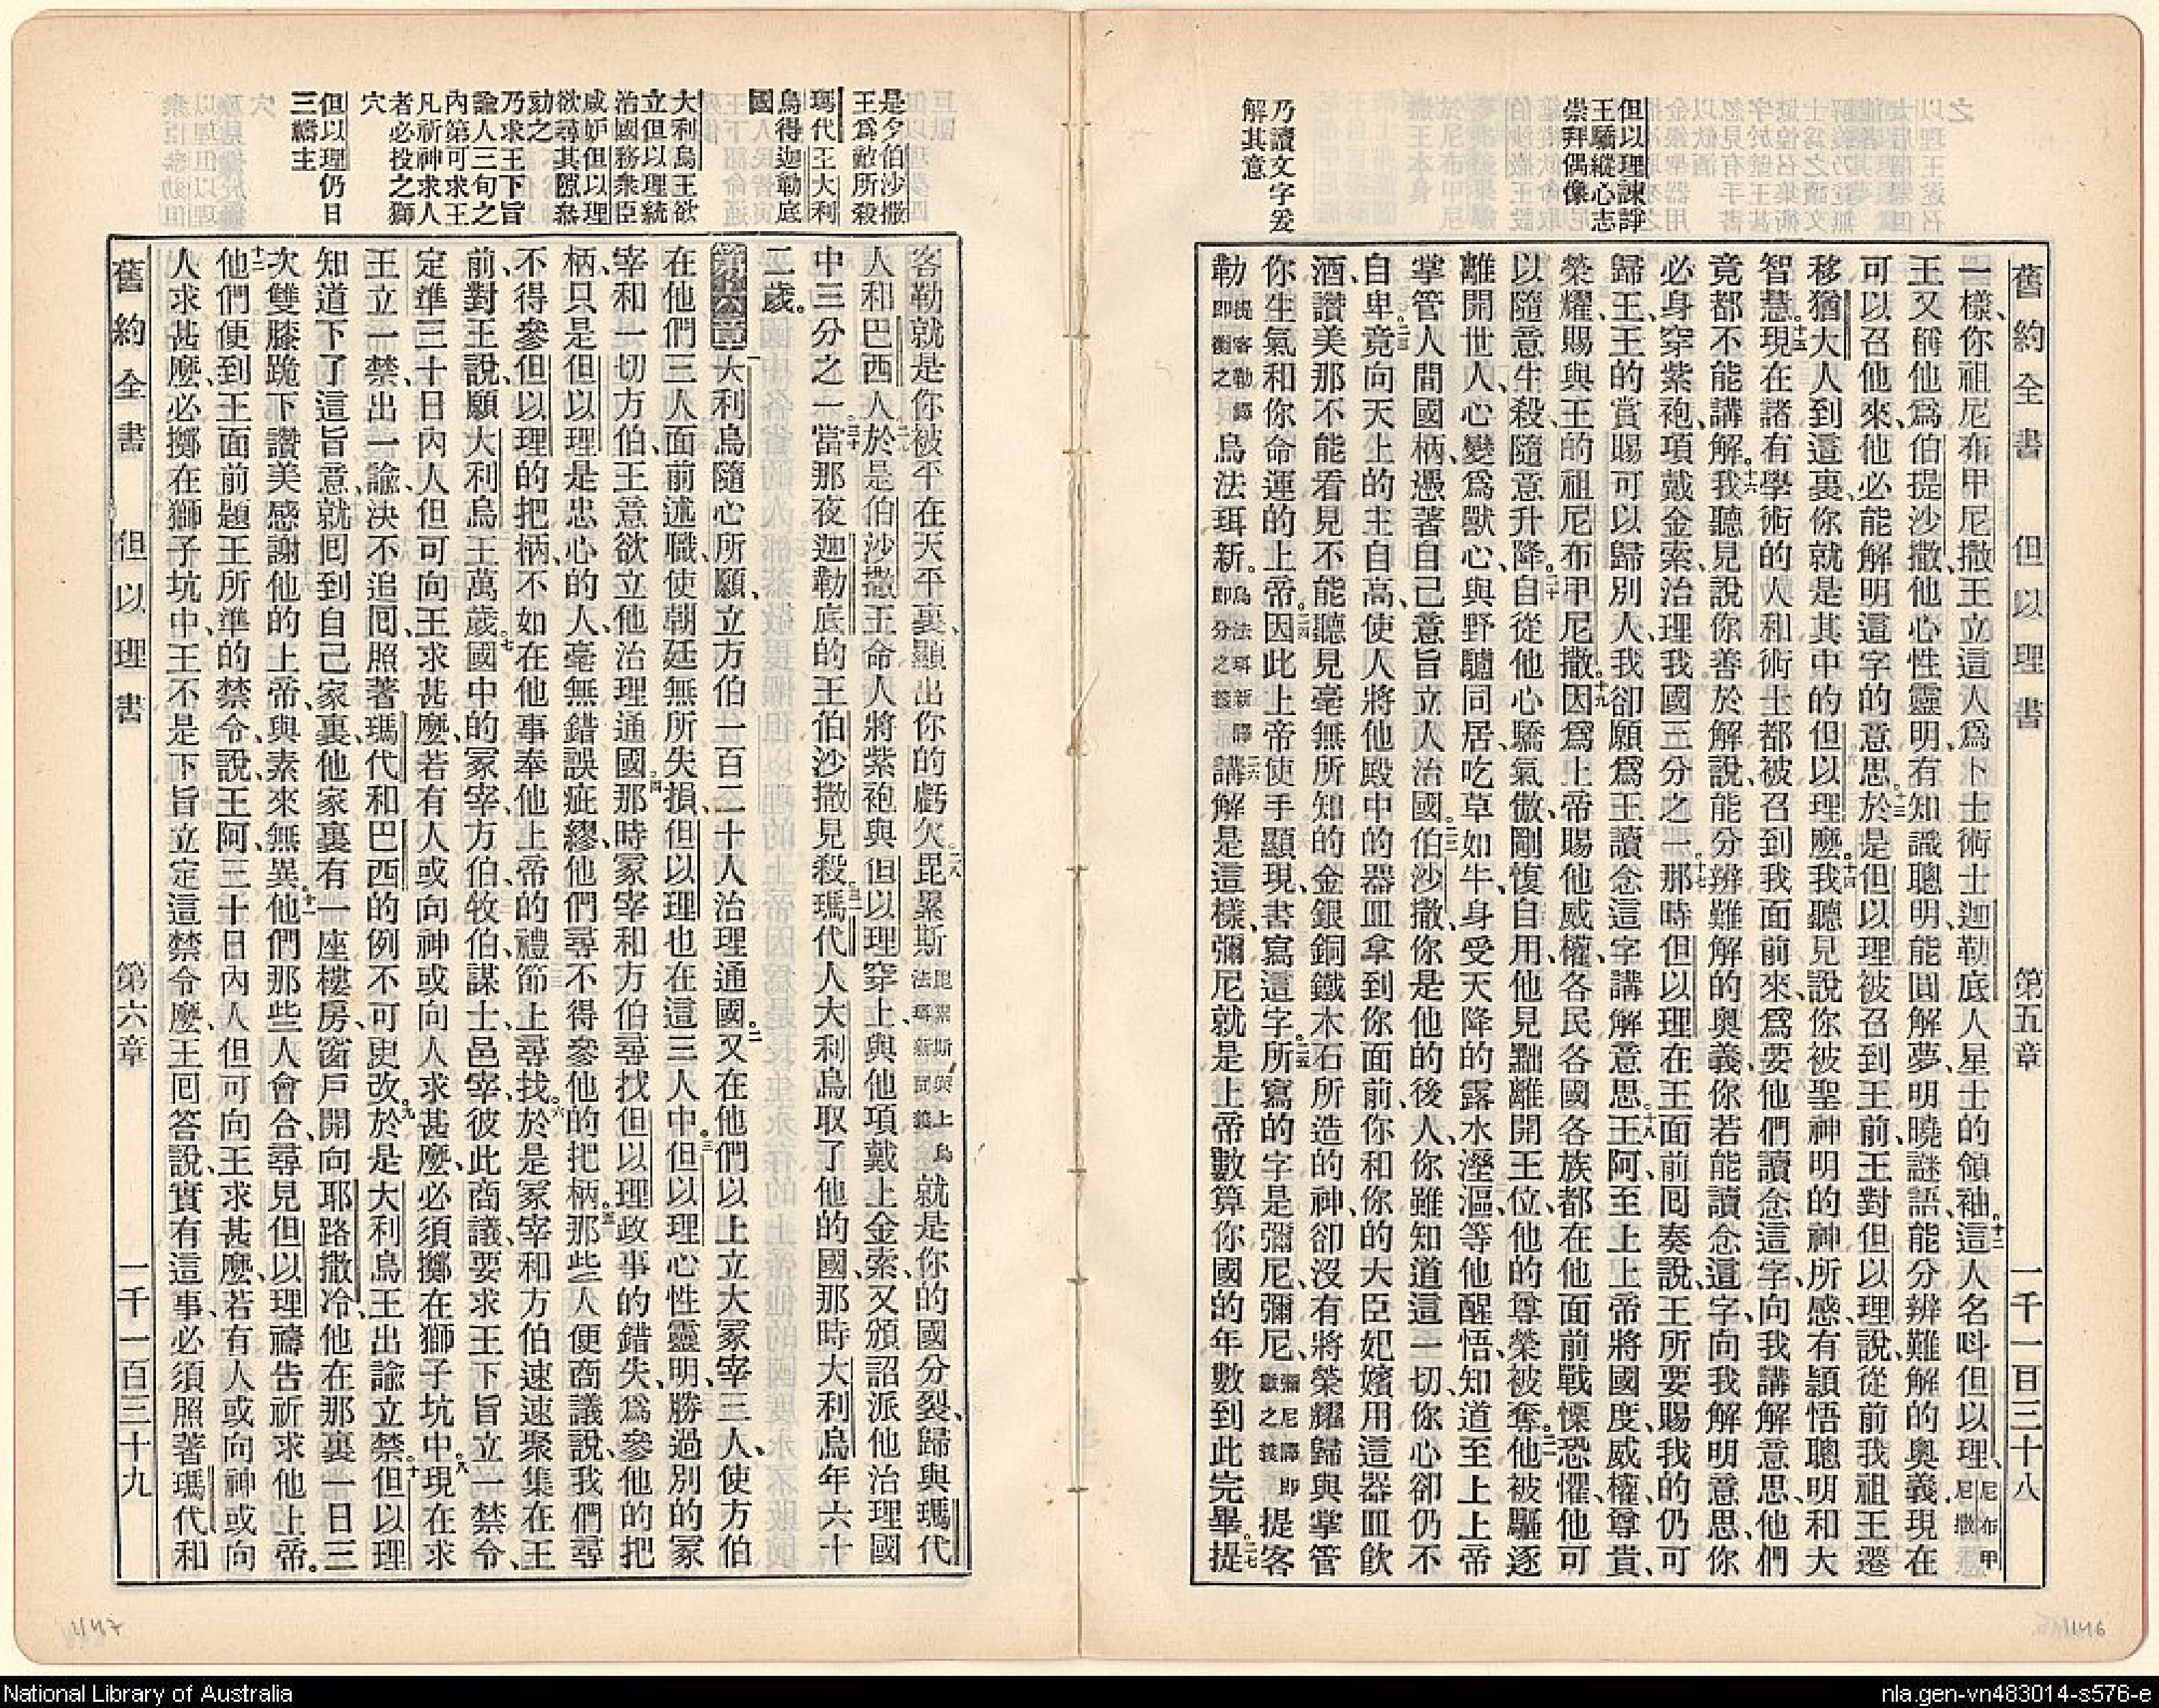 舊約全書 但以理書 第五章 一千一百三十八
但以理諫諍
王驕縱心志
崇拜偶像
乃讀文字爰
解其意
一樣、你祖尼布甲尼撒王立這人爲卜士術士迦勒底人星士的領袖。十二這人名呌但以理、尼布甲尼撒
王又稱他爲伯提沙撒、他心性靈明、有知識聰明、能圓解夢、明曉謎語、能分辨難解的奧義、現在
可以召他來、他必能解明這字的意思。十三於是但以理被召到王前、王對但以理說、從前我祖王遷
移猶大人到這裏、你就是其中的但以理麽。十四我聽見說你被聖神明的神所感、有穎悟聰明和大
智慧。十五現在諸有學術的人和術士、都被召到我面前來、爲要他們讀念這字、向我講解意思、他們
竟都不能講解。十六我聽見說你善於解說、能分辨難解的奧義、你若能讀念這字、向我解明意思、你
必身穿紫袍、項戴金索、治理我國三分之一。十七那時但以理在王面前囘奏說、王所要賜我的仍可
歸王、王的賞賜可以歸別人、我卻願爲王讀念這字、講解意思。十八王阿、至上上帝將國度、威權、尊貴、
榮耀、賜與王的祖尼布甲尼撒。十九因爲上帝賜他威權、各民各國各族、都在他面前戰慄恐懼、他可
以隨意生殺、隨意升降。二十自從他心驕氣傲、剛愎自用、他見黜離開王位、他的尊榮被奪。二一他被驅逐
離開世人、心變爲獸心、與野驢同居、吃草如牛、身受天降的露水溼漚、等他醒悟、知道至上上帝
掌管人間國柄、憑著自己意旨立人治國。二二伯沙撒、你是他的後人、你雖知道這一切、你心卻仍不
自卑。二三竟向天上的主自高、使人將他殿中的器皿拿到你面前、你和你的大臣妃嬪用這器皿飲
酒、讚美那不能看見不能聽見毫無所知的金銀銅鐵木石所造的神、卻沒有將榮耀歸與掌管
你生氣和你命運的上帝。二四因此上帝使手顯現、書寫這字。二五所寫的字是彌尼、彌尼、彌尼譯即數之義提客
勒提客勒譯即衡之義烏法珥新。烏法珥新譯即分之義二六講解是這樣、彌尼就是上帝數算你國的年數到此完畢。二七提
是夕伯沙撒
王爲敵所殺
瑪代王大利
烏得迦勒底
國
大利烏王欲
立但以理統
治國務衆臣
咸妒但以理
欲尋其隙叅
劾之
乃求王下旨
諭人三旬之
內第可求王
凡祈神求人
者必投之獅
穴
但以理仍日
三禱主
客勒就是你被平在天平裏、顯出你的虧欠。二八毘累斯毘累斯與上烏法珥新同義、就是你的國分裂、歸與瑪代
人和巴西人。二九於是伯沙撒王命人將紫袍與但以理穿上、與他項戴上金索、又頒詔派他治理國
中三分之一。三十當那夜迦勒底的王伯沙撒見殺。三一瑪代人大利烏取了他的國、那時大利烏年六十
二歲。
第六章 一大利烏隨心所願、立方伯一百二十人治理通國。二又在他們以上立大冢宰三人、使方伯
在他們三人面前述職、使朝廷無所失損、但以理也在這三人中。三但以理心性靈明、勝過別的冢
宰和一切方伯、王意欲立他治理通國。四那時冢宰和方伯尋找但以理政事的錯失、爲參他的把
柄、只是但以理是忠心的人、毫無錯誤疵繆、他們尋不得參他的把柄。五那些人便商議說、我們尋
不得參但以理的把柄、不如在他事奉他上帝的禮節上尋找。六於是冢宰和方伯速速聚集在王
前、對王說、願大利烏王萬歲。七國中的冢宰、方伯、牧伯、謀士、邑宰、彼此商議、要求王下旨立一禁令、
定準三十日內、人但可向王求甚麽、若有人或向神或向人求甚麽、必須擲在獅子坑中。八現在求
王立一禁、出一諭、決不追囘、照著瑪代和巴西的例不可更改。九於是大利烏王出諭立禁。十但以理
知道下了這旨意、就囘到自己家裏、他家裏有一座樓房、窗戶開向耶路撒冷、他在那裏一日三
次雙膝跪下讚美感謝他的上帝、與素來無異。十一他們那些人會合、尋見但以理禱告祈求他上帝。
十二他們便到王面前題王所準的禁令、說、王阿、三十日內人但可向王求甚麽、若有人或向神或向
人求甚麽、必擲在獅子坑中、王不是下旨立定這禁令麽、王囘答說、實有這事、必須照著瑪代和
舊約全書 但以理書 第六章 一千一百三十九
1147
1146
National Library of Australia
nla.gen-vn483014-s576-e